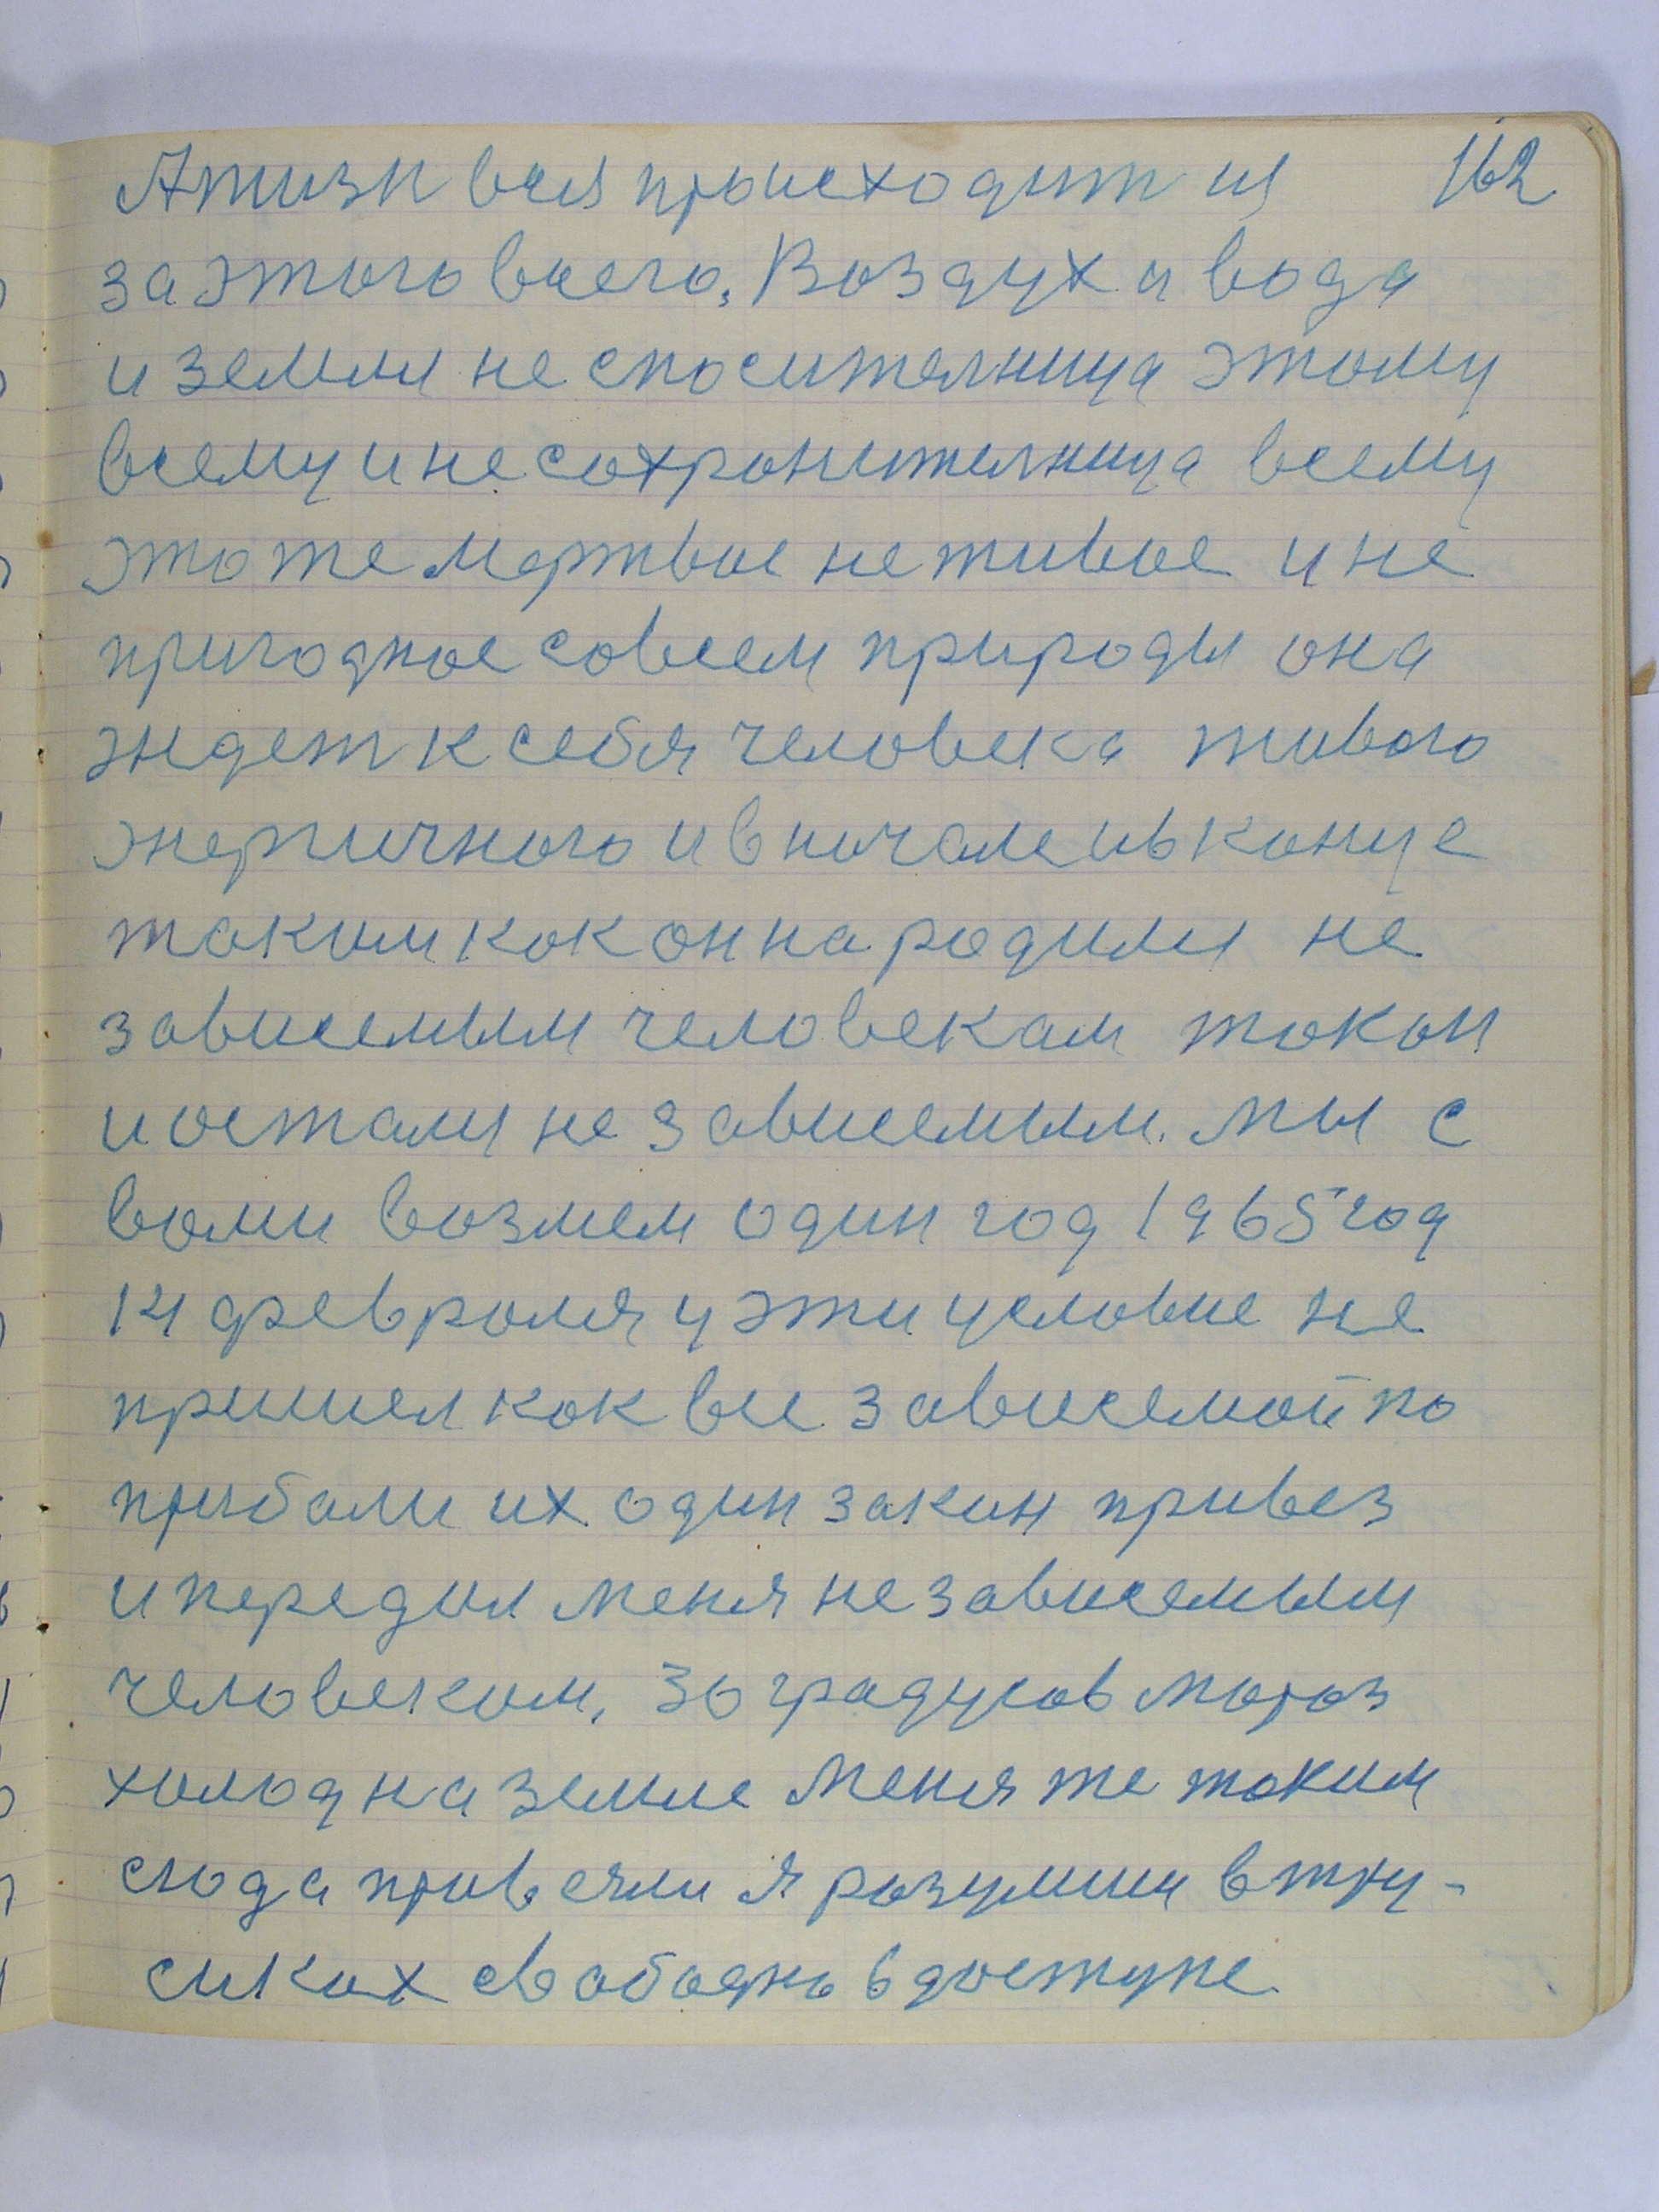 А жизн вся происходит из 162
за этого всего, Воздух и вода
и земля не спосителница этому
всему и не сохронителница всему
это же мертвое не живое и не
пригодное совсем природы она
ждет к себя человека живого
энергичного и в ночале и в конце
таким как он на родился не
зависемым человекам такой
и остался не зависемым. Мы с
вами возмем один год 1965 год
14 февроля у эти условие не
пришел как все зависемой по
прибали их один закон привез
и передал меня не зависемым
человеком, 30 градусов мороз
холод на земле меня же таким
сюда привезли я розулши в тру-
сиках свободно в доступе